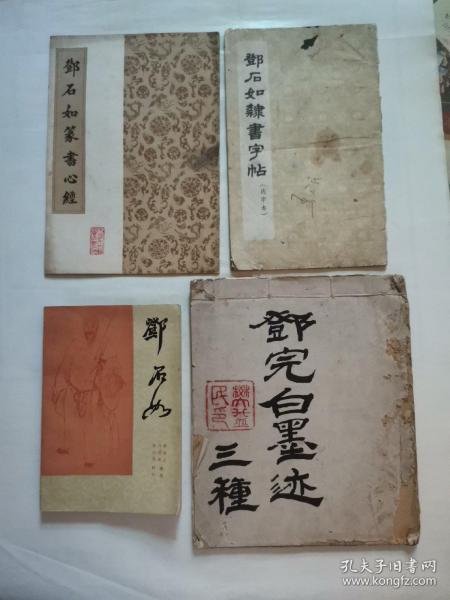 鄧石如篆書心經
鄧石如隸書字帖
鄧石如
鄧完白墨迹
三種
孔夫子旧书网
www.kongfz.com